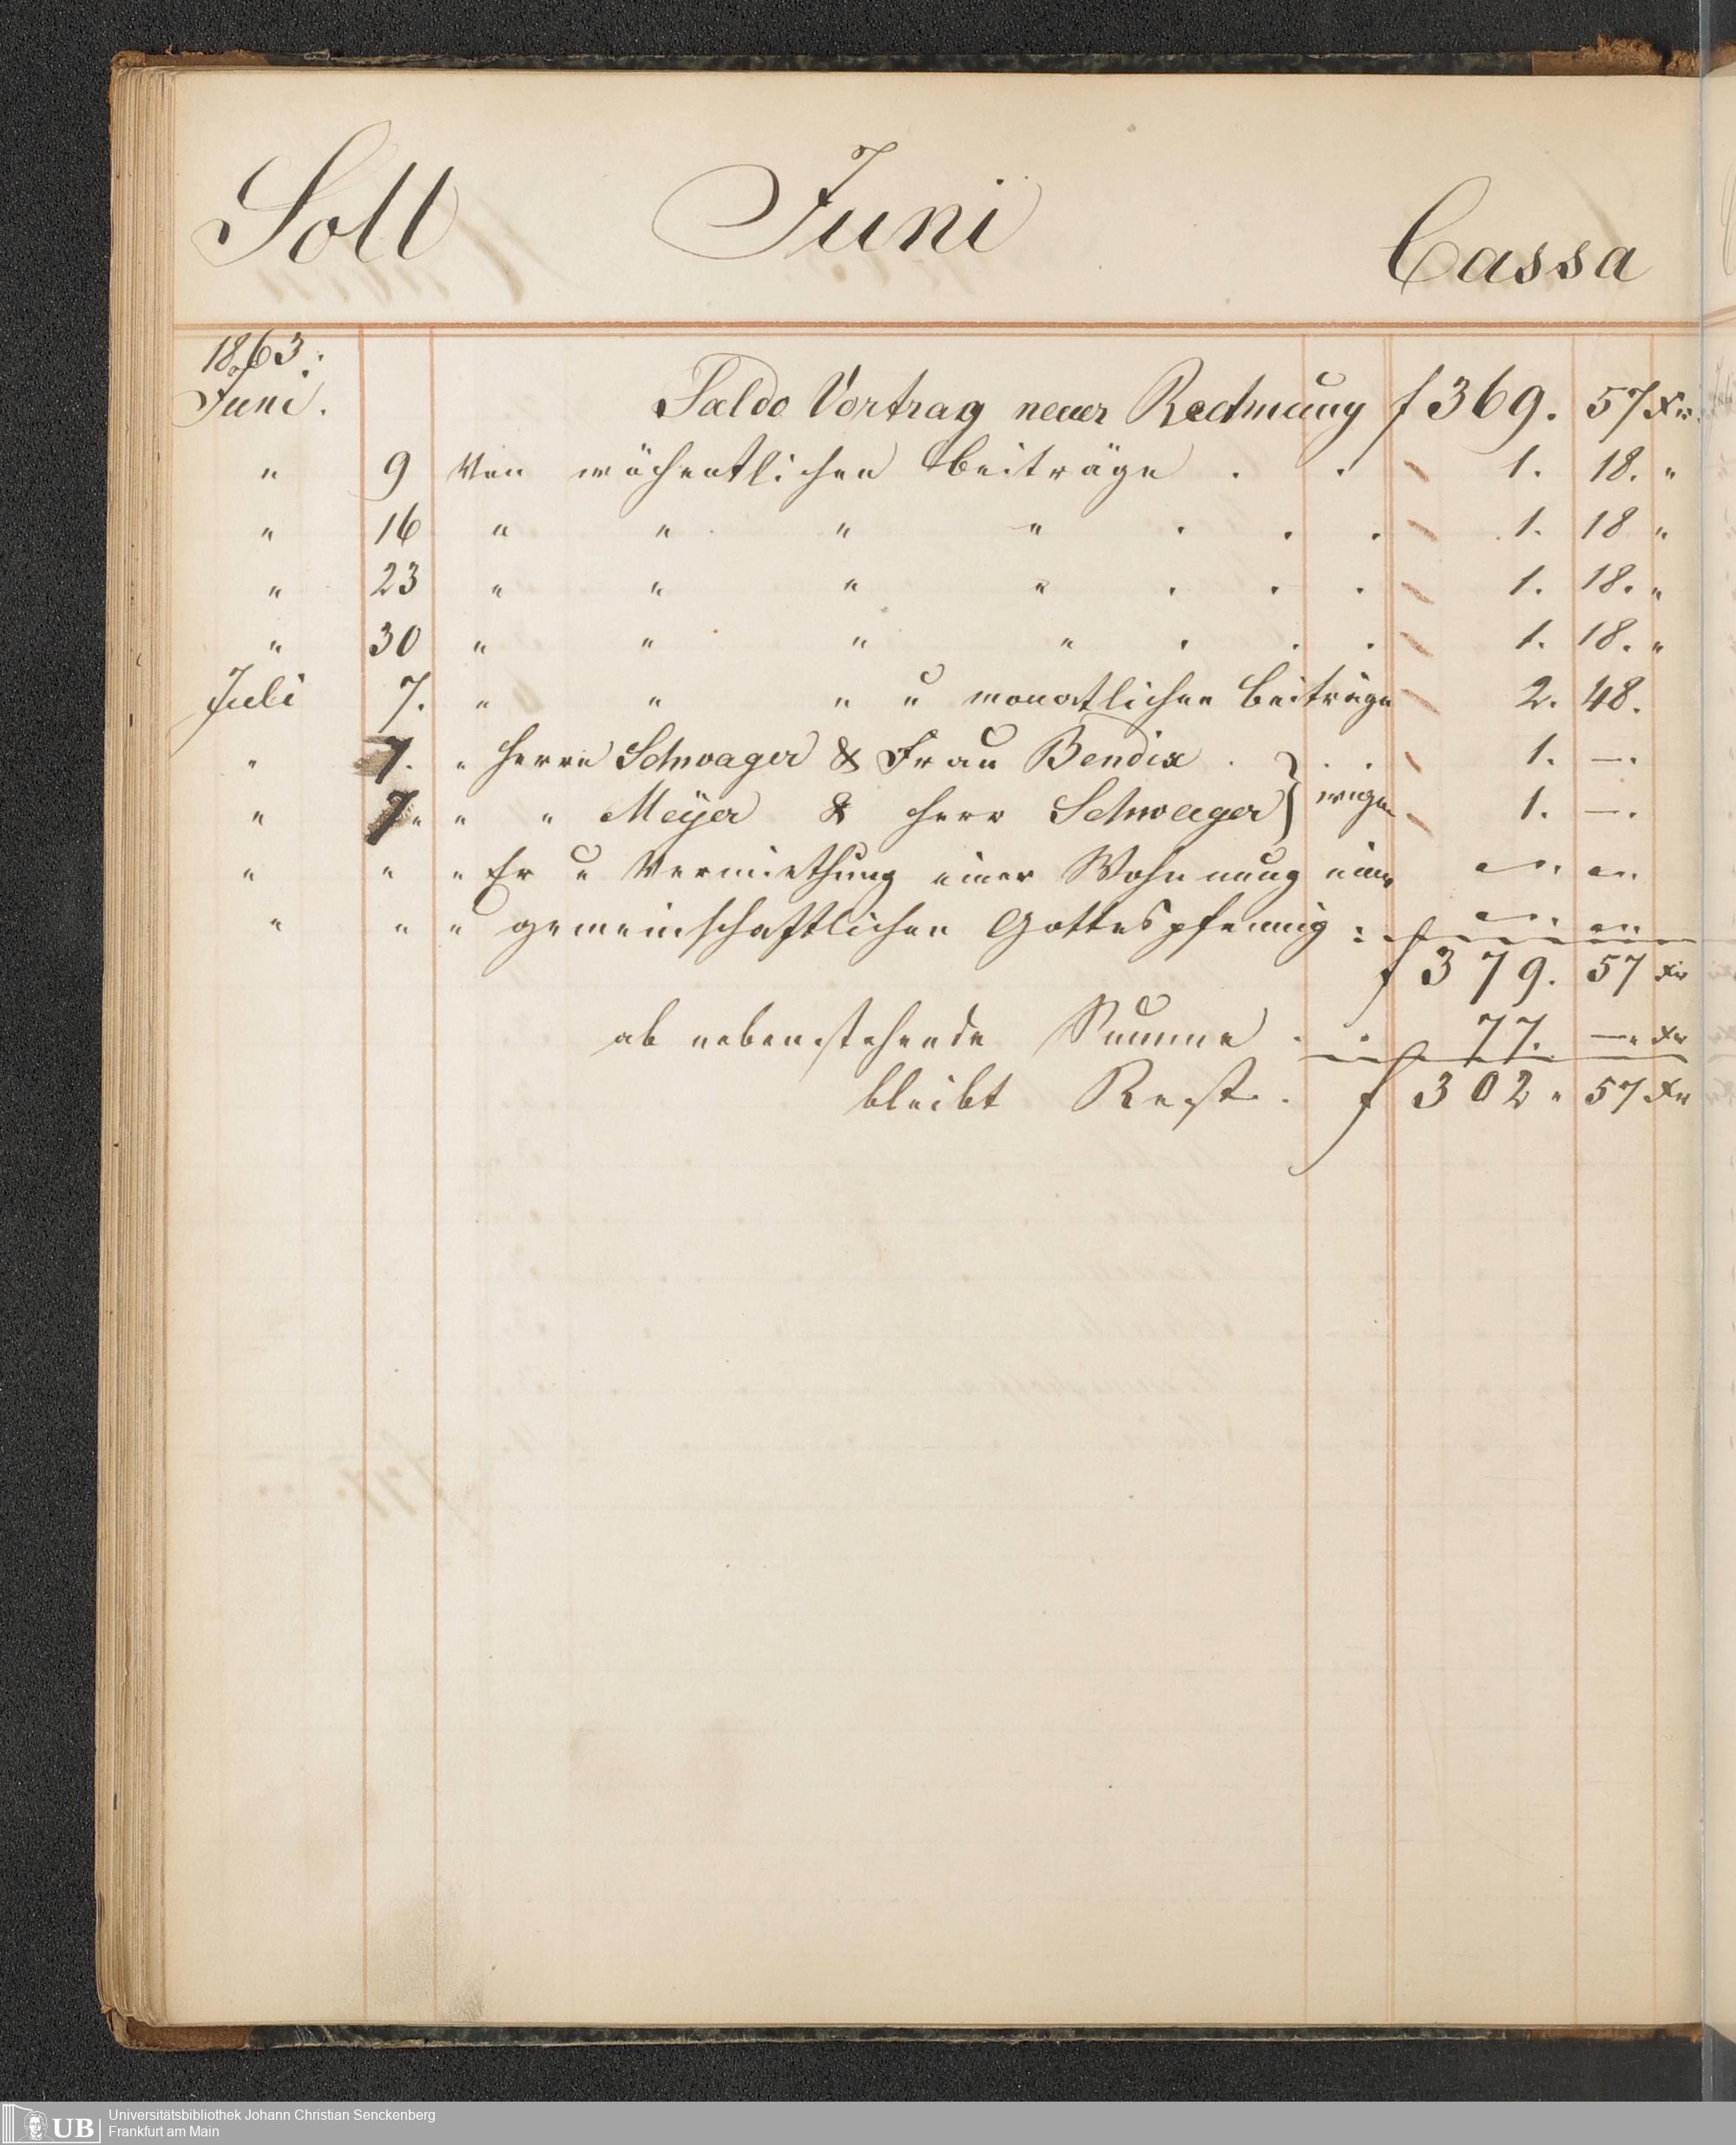 Soll Juni Cassa
1863.
Juni. Saldo Vortrag neuer Rechnung f 369. 57 Xr.
" 9 Von wöchentlichen Beiträge . . 1. 18. "
" 16 " " " " . . . 1. 18 "
" 23 " " " " . . . 1. 18. "
" 30 " " " " . . . 1. 18. "
Juli 7. " " " u monatlichen Beiträge 2. 48.
" 7. " Herrn Schwager & Frau Bendix . . . 1. —.
" 7. " " Meÿer & Herr Schwager } wegen 1. —.
" " " Er u Vermiethung einer Wohnung
" " " gemeinschaftlichen Gottespfennig :
f 379. 57 Xr
ab nebenstehende Summe . . 77. —. Xr
bleibt Rest. . f 302. 57 Xr
UB Universitätsbibliothek Johann Christian Senckenberg
Frankfurt am Main